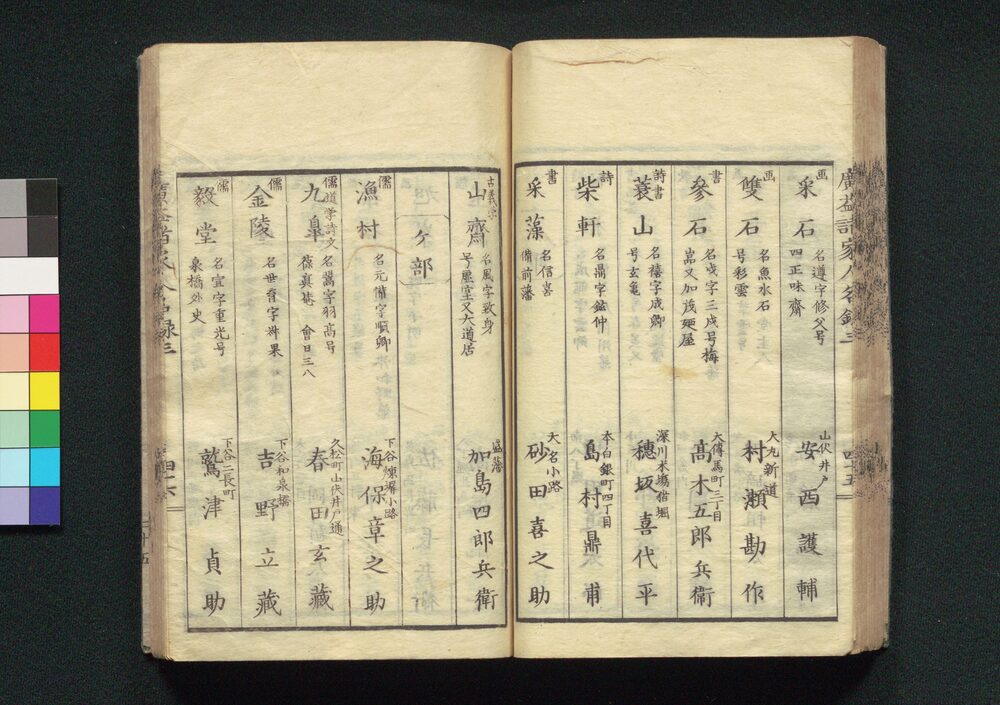 画
采石
名遵字修父号
四正味齋
山伏井戸
安西護輔
画
雙石
名魚水石
号彩雲
大九新道
村瀬勘作
書
參石
名戍字三戍号梅
嵓又加茂麺屋
大傳馬町三丁目
髙木五郎兵衞
詩書
蓑山
名穗字成卿
号玄亀
深川木場猫堀
穗坂喜代平
詩
柴軒
名鼎字鉉仲
本白銀町四丁目
島村鼎甫
書
采藻
名信喜
備前藩
大名小路
砂田喜之助
古義学
山齋
名風字致身
号塵堂又大道居
加島四郎兵衛
ケ部
儒
漁村
名元備字順卿
下谷煉塀小路
海保章之助
儒道学詩文
九皐
名暠字羽高号
葆真菴 會日三八
久松町山伏井戸通
春田玄藏
儒
金陵
名世育字叔果
下谷和泉橋
吉野立藏
儒
毅堂
名宣字重光号
泉橋外史
下谷二長町
鷲津貞助